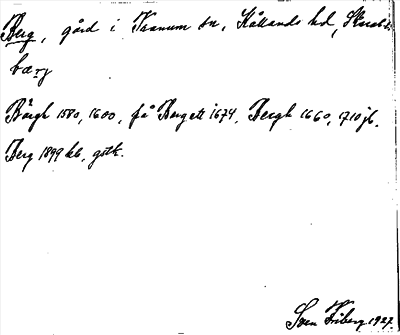 Berg, gård i Tranum sn, Kållands hd, Skarab. l.
bærj
Bärgh 1580, 1600, på Bergett 1674, Bergh 1660, 1710 jb.
Berg 1899 kb, gstk.
Sven Friberg 1927.